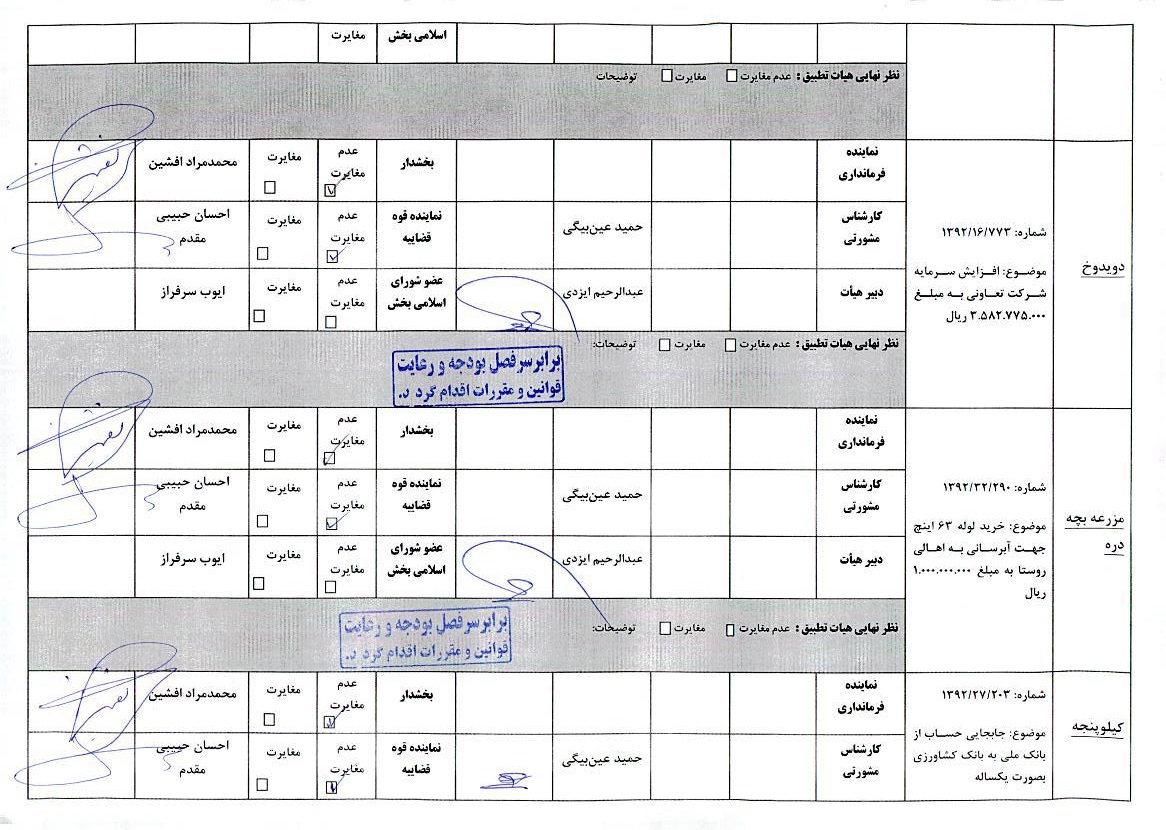 اسلامی بخش
مغایرت
نظر نهایی هیات تطبیق: عدم مغایرت □ مغایرت □ توضیحات
دویدوخ
شماره: ۱۳۹۲/۱۶/۷۷۳
موضوع: افزایش سرمایه
شرکت تعاونی به مبلغ
۳.۵۸۲.۷۷۵.۰۰۰ ریال
نماینده
فرمانداری
بخشدار
عدم
مغایرت
مغایرت
محمدمراد افشین
کارشناس
مشورتی
حمید عین‌بیگی
نماینده قوه
قضاییه
عدم
مغایرت
مغایرت
احسان حبیبی
مقدم
دبیر هیأت
عبدالرحیم ایزدی
عضو شورای
اسلامی بخش
عدم
مغایرت
مغایرت
ایوب سرفراز
نظر نهایی هیات تطبیق: عدم مغایرت □ مغایرت □ توضیحات:
برابر سرفصل بودجه و رعایت
قوانین و مقررات اقدام گردد.
مزرعه بچه
دره
شماره: ۱۳۹۲/۳۲/۲۹۰
موضوع: خرید لوله ۶۳ اینچ
جهت آبرسانی به اهالی
روستا به مبلغ ۱.۰۰۰.۰۰۰.۰۰۰
ریال
نماینده
فرمانداری
بخشدار
عدم
مغایرت
مغایرت
محمدمراد افشین
کارشناس
مشورتی
حمید عین‌بیگی
نماینده قوه
قضاییه
عدم
مغایرت
مغایرت
احسان حبیبی
مقدم
دبیر هیأت
عبدالرحیم ایزدی
عضو شورای
اسلامی بخش
عدم
مغایرت
مغایرت
ایوب سرفراز
نظر نهایی هیات تطبیق: عدم مغایرت □ مغایرت □ توضیحات:
برابر سرفصل بودجه و رعایت
قوانین و مقررات اقدام گردد.
کیلوپنجه
شماره: ۱۳۹۲/۲۷/۲۰۳
موضوع: جابجایی حساب از
بانک ملی به بانک کشاورزی
بصورت یکساله
نماینده
فرمانداری
بخشدار
عدم
مغایرت
مغایرت
محمدمراد افشین
کارشناس
مشورتی
حمید عین‌بیگی
نماینده قوه
قضاییه
عدم
مغایرت
مغایرت
احسان حبیبی
مقدم